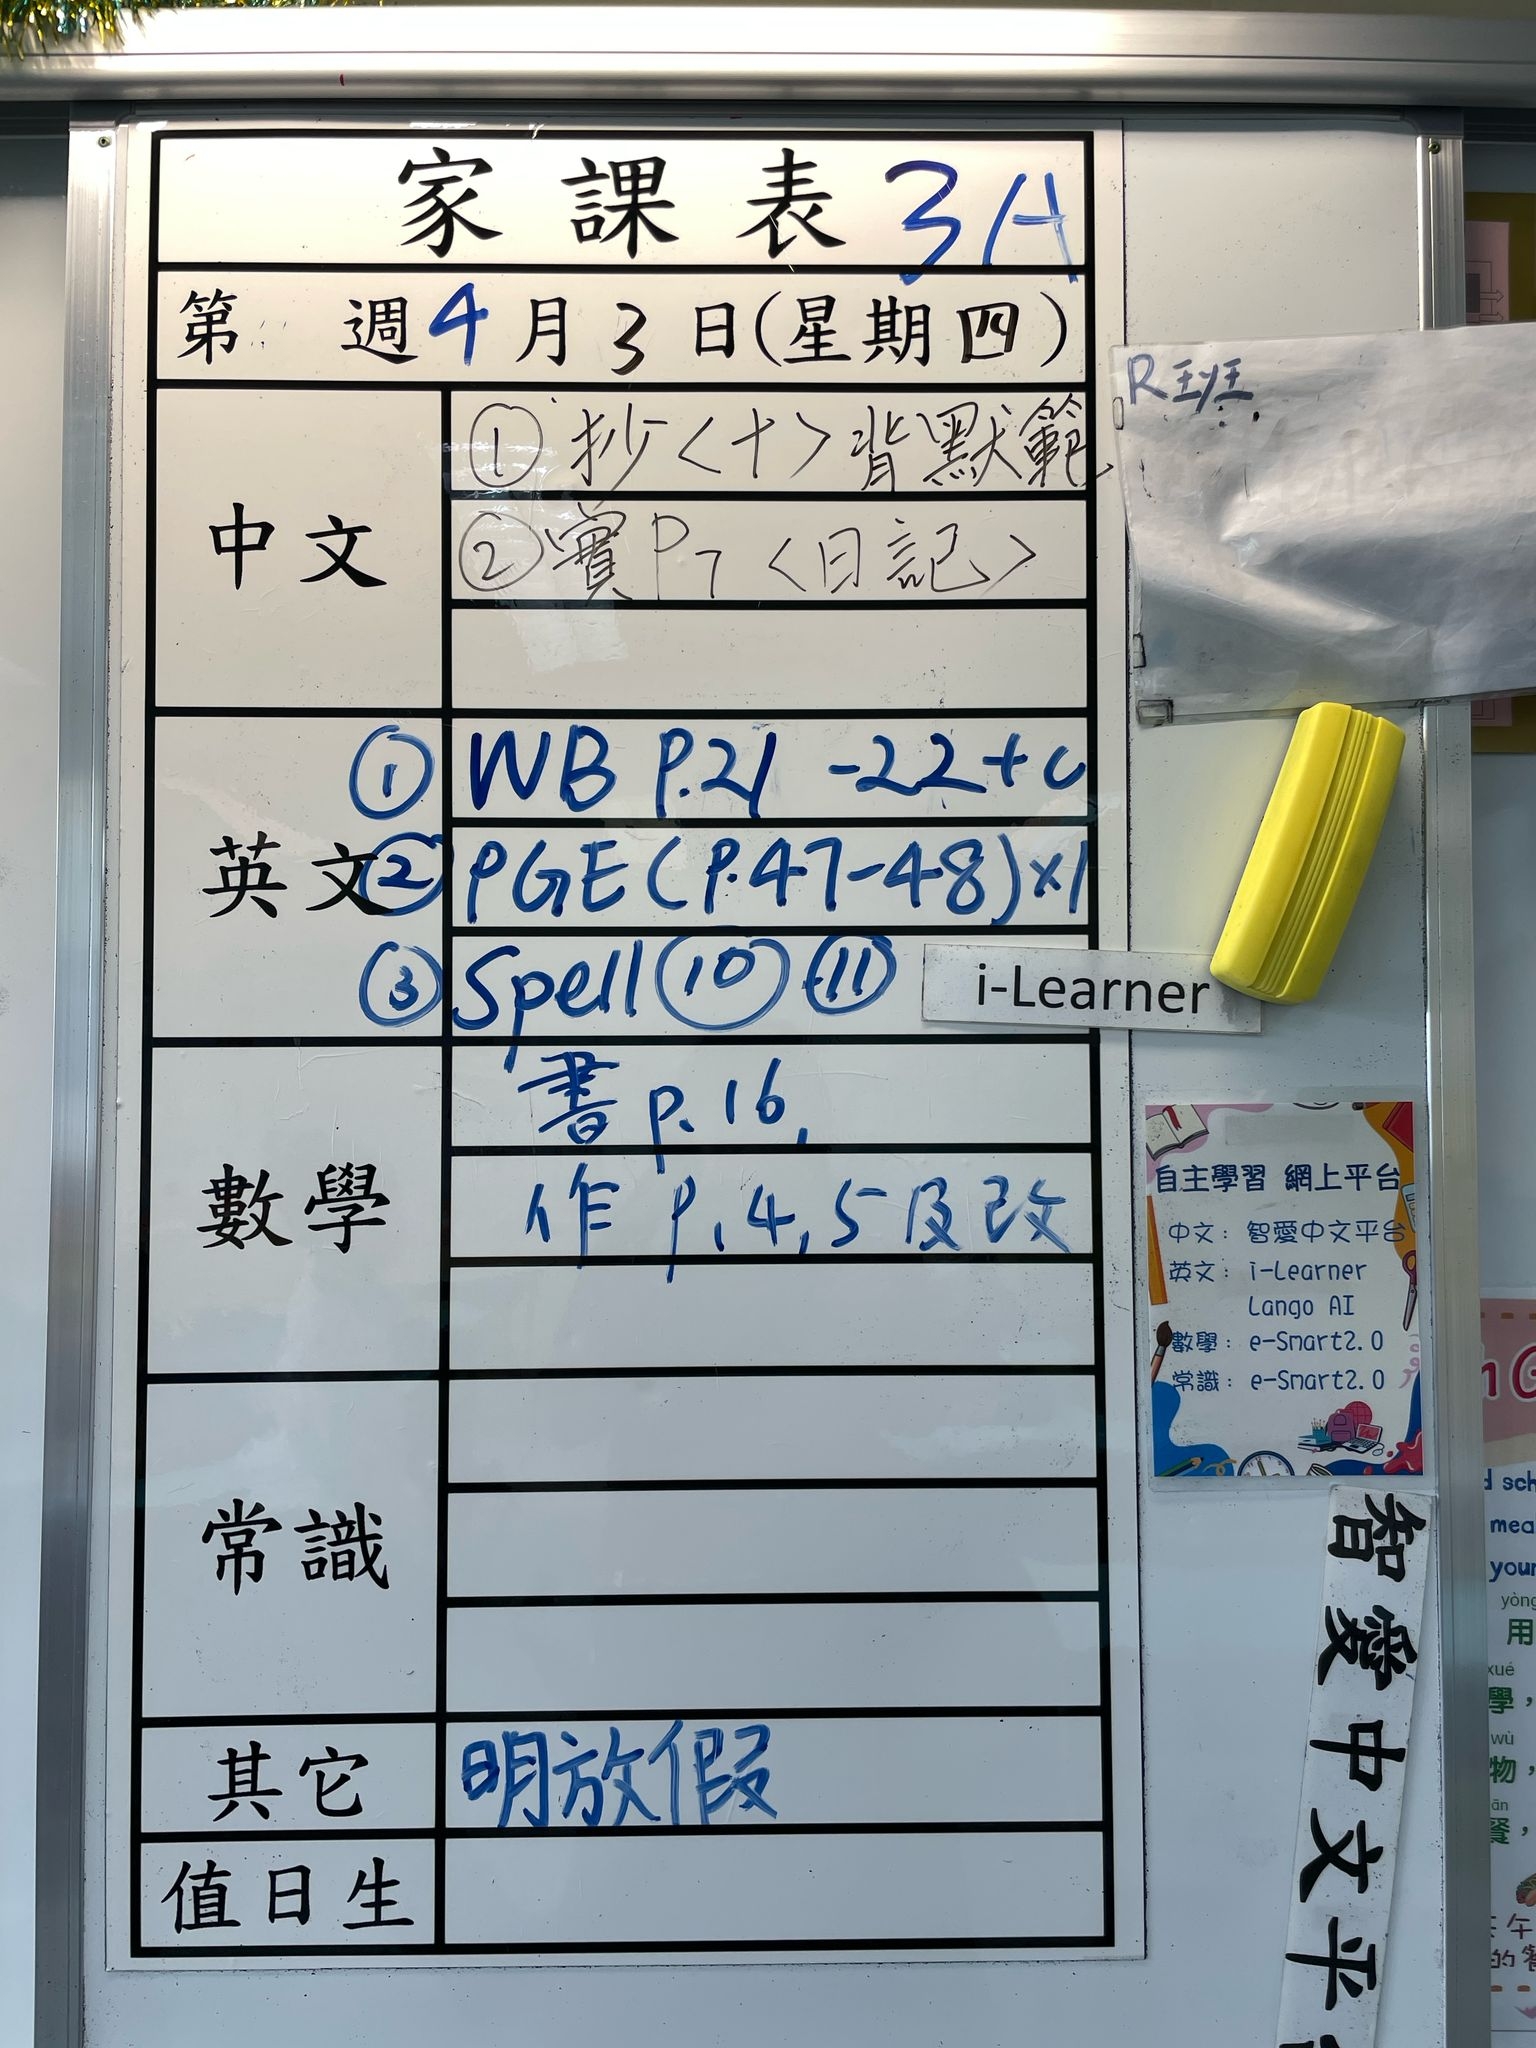 家課表 3A
第 週 4月3日(星期四)
中文
① 抄〈十〉背默範
② 實P7〈日記〉
英文
① WB P.21-22+c
② PGE(P.47-48)x1
③ Spell ⑩ ⑪
i-Learner
數學
書 p.16,
作 p.4,5及改
常識
其它
明放假
值日生
自主學習 網上平台
中文: 智愛中文平台
英文: i-Learner
Lango AI
數學: e-Smart2.0
常識: e-Smart2.0
智愛中文平
yòng
用
xué
學,
wù
物,